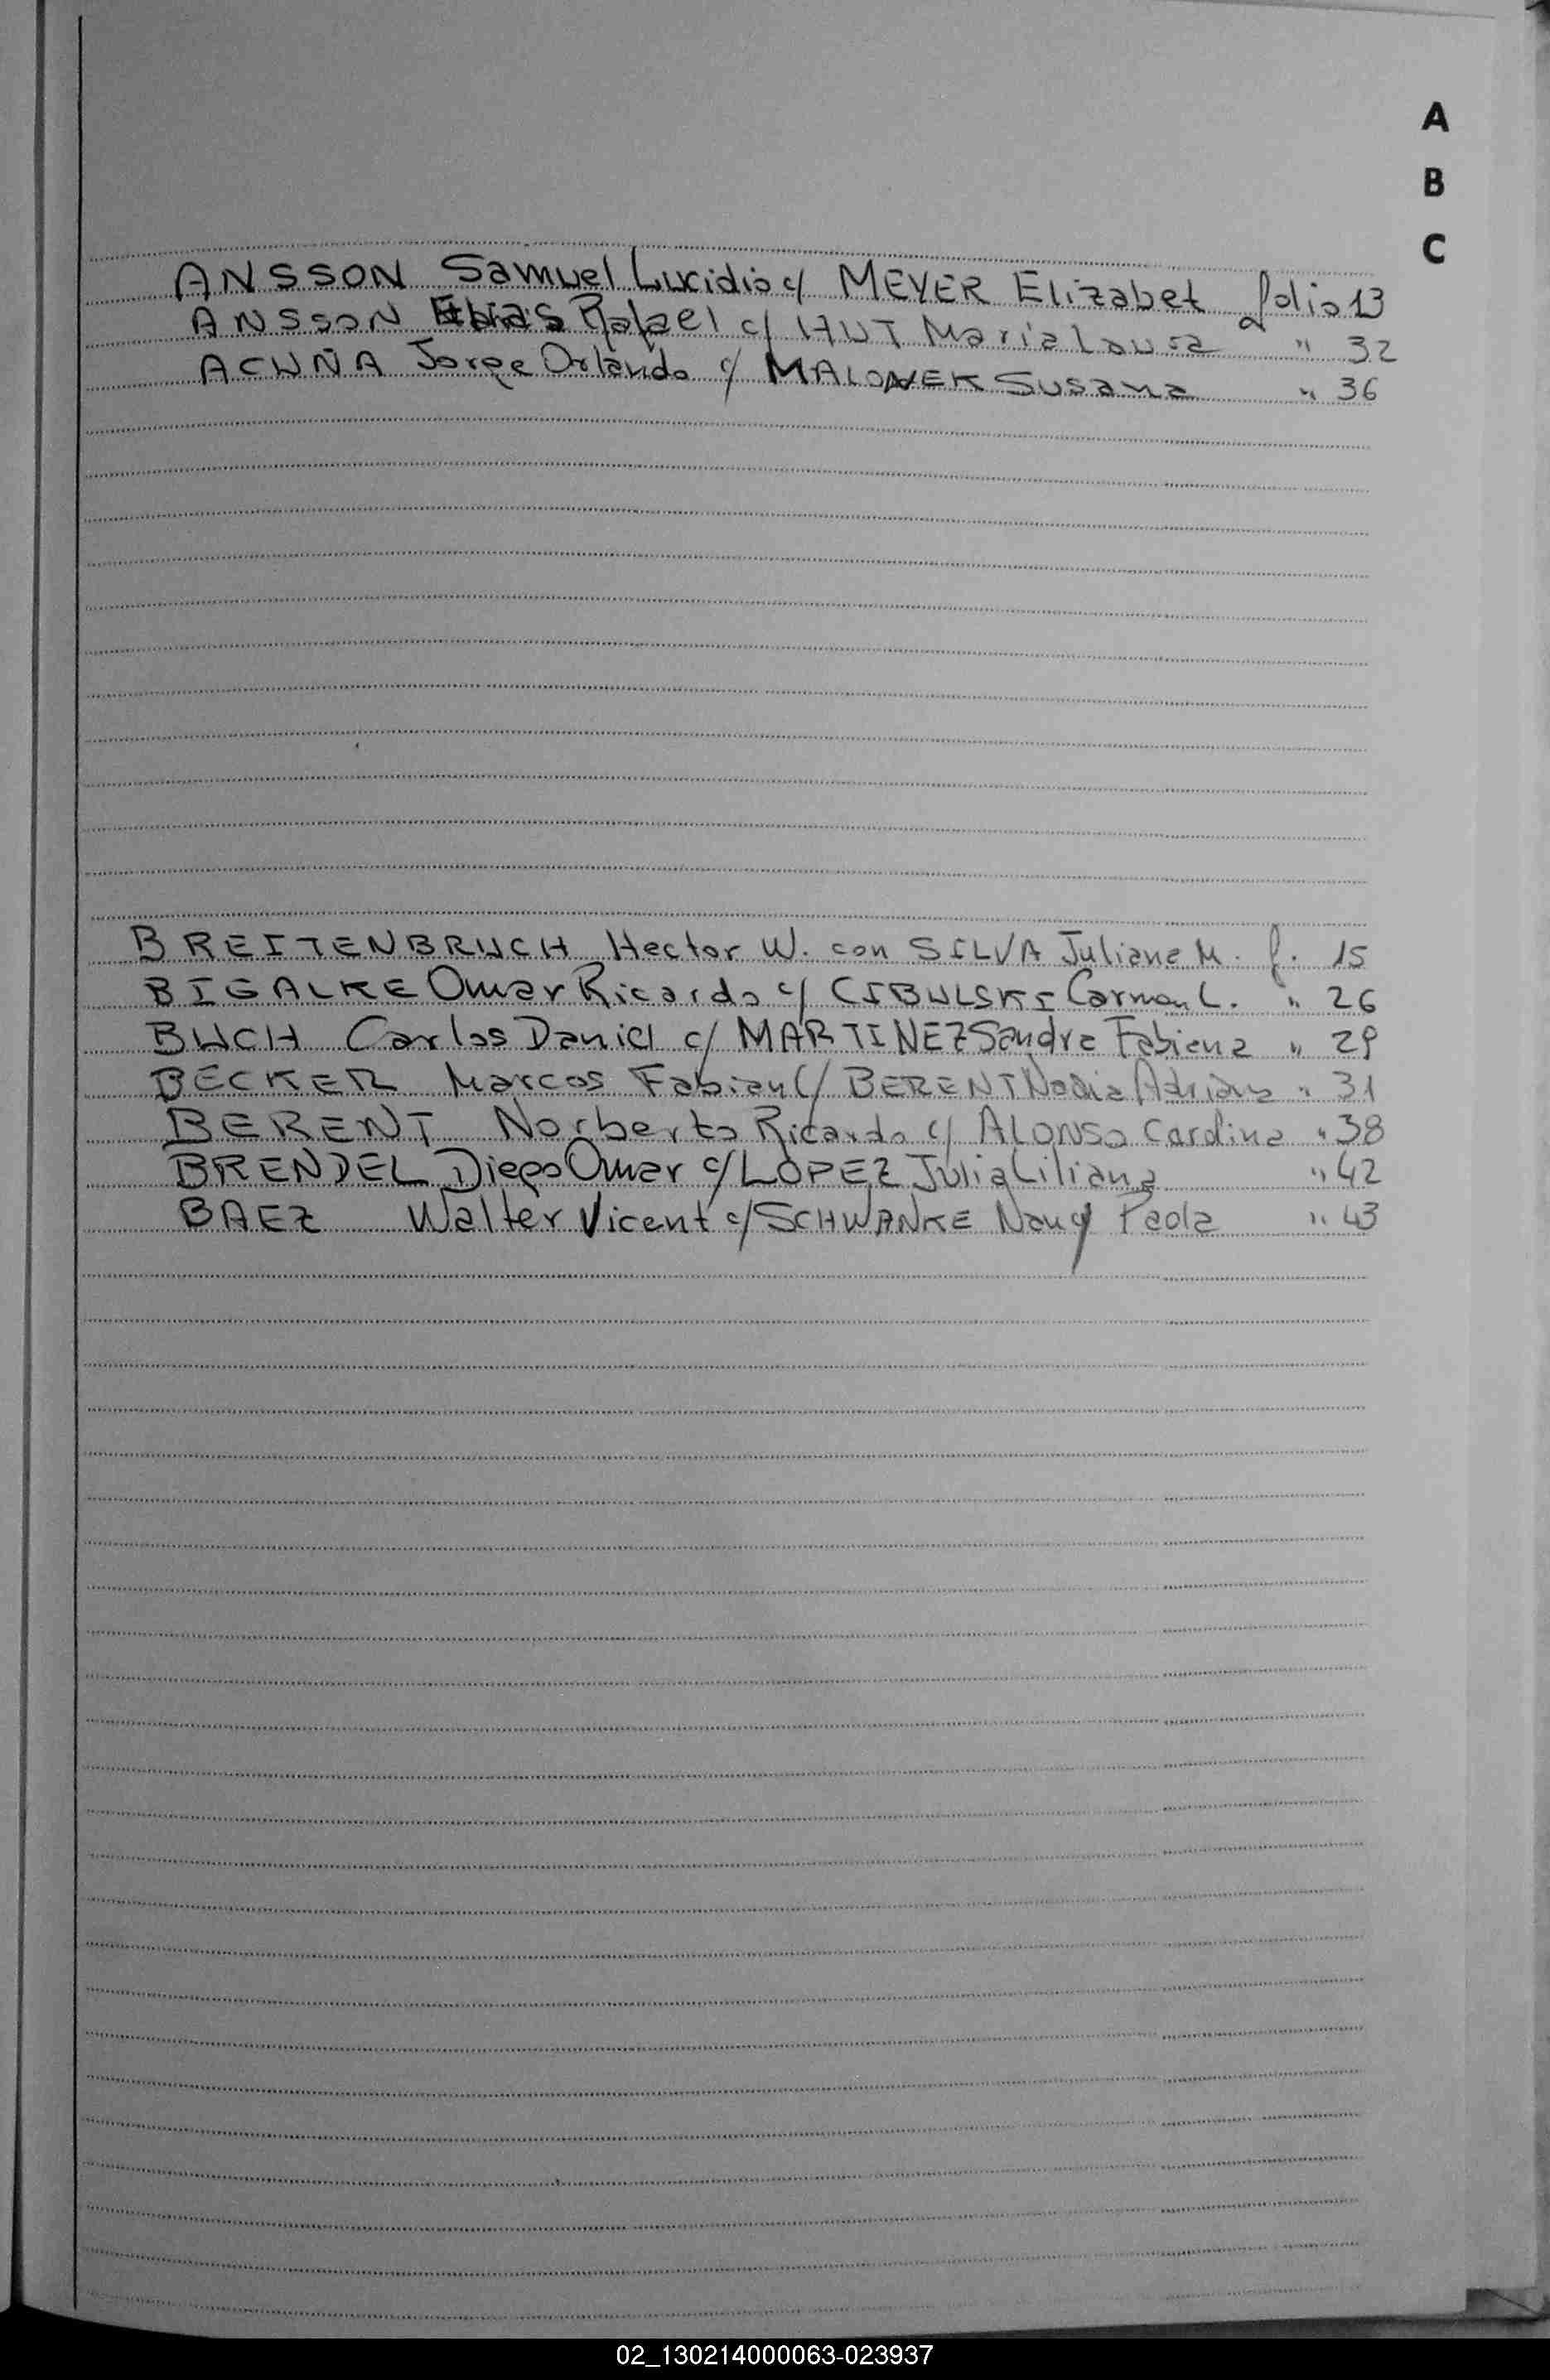 A
B
C
ANSSON Samuel Lucidio c/ MEYER Elizabet folio 13
ANSSON Rafael c/ HUT Maria Louisa " 32
ACUÑA Jorge Orlando c/ MALONEK Susana " 36
BREITENBRUCH Hector W. con SILVA Juliane M. f. 15
BIGALKE Omar Ricardo c/ CIBULSKI Carmen C. " 26
BUCH Carlos Daniel c/ MARTINEZ Sandra Fabiana " 29
BECKER Marcos Fabian C/ BERENT Nadia Adriana " 31
BERENT Norberto Ricardo c/ ALONSO Carolina " 38
BRENDEL Diego Omar c/ LOPEZ Julia Liliana " 42
BAEZ Walter Vicent c/ SCHWANKE Nancy Paola " 43
02_130214000063-023937